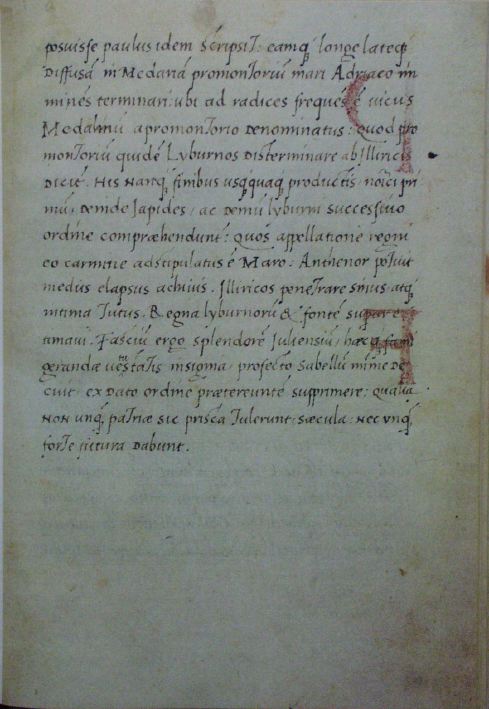 posuisse paulus idem scripsit: eamq; longe lateq;
Diffusā in Medariā promontoriū mari Adriaco im
minēs terminari: ubi ad radices frequēs ē vicus
Medalinū a promontorio denominatus: Quod pro
montoriū quidē Lyburnos disterminare ab Illiricis
dicūt. His nanq; finibus usq;quaq; productis,
mū, deinde Iapides, ac demū lyburni successivo
ordine compræhendunt: Quos appellatione regni
eo carmine adstipulatus ē Maro: Anthenor potuit
medius elapsus achivis. Illiricos penetrare sinus atq;
intima tutus. Regna lyburnorū & fontē superare
timavi. Fasciū ergo splendorē Iuliensiū, hæcq; fam
gerandæ vetustatis insignia, profecto Sabellū minime de
cuit, ex dato ordine prætereunte supprimere: qualia
non unq; patriæ sic prisca tulerunt sæcula: nec unq;
forte futura dabunt.